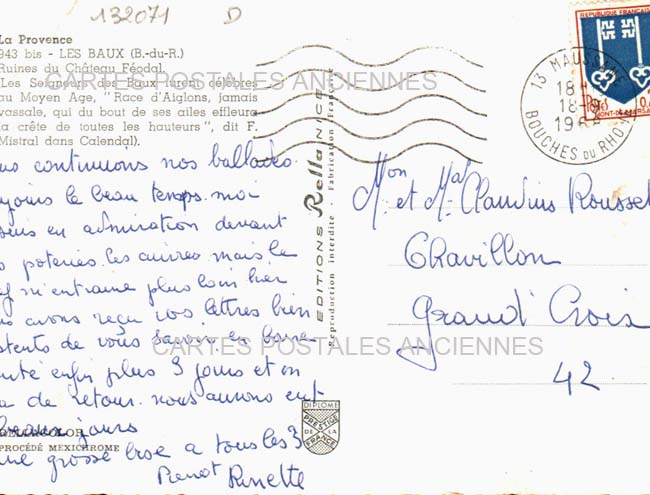 132071 D
La Provence
943 bis - LES BAUX (B.-du-R.)
Ruines du Château Féodal.
"Les Seigneurs des Baux furent célèbres
au Moyen Age, "Race d'Aiglons, jamais
vassale, qui du bout de ses ailes effleura
la crête de toutes les hauteurs", dit F.
Mistral dans Calendal).
CARTES POSTALES ANCIENNES
us continuons nos ballades
le beau temps. moi
suis en admiration devant
s poteries. les cuivres mais le
m'entraine plus loin hier
us avons reçu vos lettres bien
de vous savoir en bonne
enfin plus 3 jours et on
a de retour. nous aurons eut
beaux jours
une grosse bise a tous les 3
Renette
RELLACOLOR
PROCÉDÉ MEXICHROME
EDITIONS Rella NICE
Reproduction interdite - Fabrication Française
DIPLOME
PRESTIGE
DE LA
FRANCE
REPUBLIQUE FRANÇAISE
Postes
MONT-DE-MARSAN
13 MAUSSANE
18 H
18-9
19
BOUCHES DU RHONE
Mon et Me Claudius Rousset
Chavillon
Grand' Croix
42
CARTES POSTALES ANCIENNES